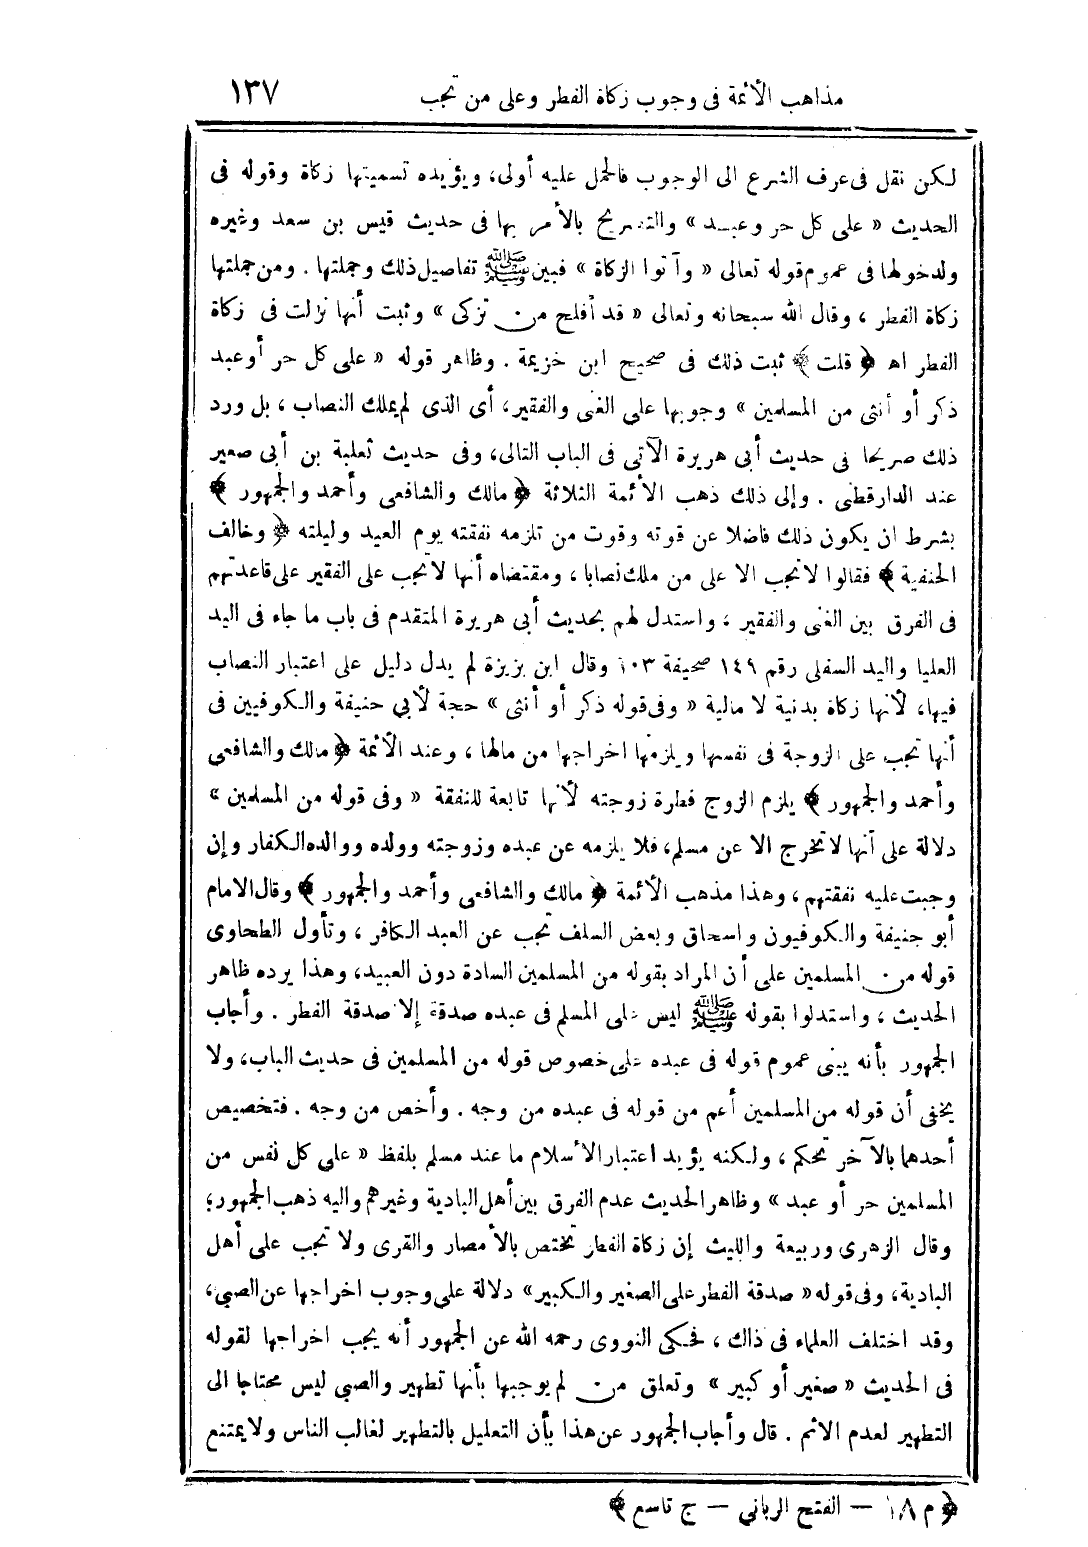 مذاهب الأئمة فى وجوب زكاة الفطر وعلى من تجب ١٣٧
لكن نقل فى عرف الشرع الى الوجوب فالحمل عليه أولى، ويؤيده تسميتها زكاة وقوله فى
الحديث « على كل حر وعبد » والتصريح بالأمر بها فى حديث قيس بن سعد وغيره
ولدخولها فى عموم قوله تعالى « وآتوا الزكاة » فبين ﷺ تفاصيل ذلك وجملتها . ومن جملتها
زكاة الفطر ، وقال الله سبحانه وتعالى « قد أفلح من تزكى » وثبت أنها نزلت فى زكاة
الفطر اه ﴿ قلت ﴾ ثبت ذلك فى صحيح ابن خزيمة . وظاهر قوله « على كل حر أو عبد
ذكر أو أنثى من المسلمين » وجوبها على الغنى والفقير، أى الذى لم يملك النصاب ، بل ورد
ذلك صريحا فى حديث أبى هريرة الآتى فى الباب التالى، وفى حديث ثعلبة بن أبى صعير
عند الدارقطنى . وإلى ذلك ذهب الأئمة الثلاثة ﴿ مالك والشافعى وأحمد والجمهور ﴾
بشرط ان يكون ذلك فاضلا عن قوته وقوت من تلزمه نفقته يوم العيد وليلته ﴿ وخالف
الحنفية ﴾ فقالوا لا تجب الا على من ملك نصابا ، ومقتضاه أنها لا تجب على الفقير على قاعدتهم
فى الفرق بين الغنى والفقير ، واستدل لهم بحديث أبى هريرة المتقدم فى باب ما جاء فى اليد
العليا واليد السفلى رقم ١٤٩ صحيفة ١٠٣ وقال ابن بزيزة لم يدل دليل على اعتبار النصاب
فيها، لأنها زكاة بدنية لا مالية « وفى قوله ذكر أو أنثى » حجة لأبي حنيفة والكوفيين فى
أنها تجب على الزوجة فى نفسها ويلزمها اخراجها من مالها ، وعند الأئمة ﴿ مالك والشافعى
وأحمد والجمهور ﴾ يلزم الزوج فطرة زوجته لأنها تابعة للنفقة « وفى قوله من المسلمين »
دلالة على أنها لا تخرج الا عن مسلم، فلا يلزمه عن عبده وزوجته وولده ووالده الكفار وإن
وجبت عليه نفقتهم ، وهذا مذهب الأئمة ﴿ مالك والشافعى وأحمد والجمهور ﴾ وقال الامام
أبو حنيفة والكوفيون واسحاق وبعض السلف تجب عن العبد الكافر ، وتأول الطحاوى
قوله من المسلمين على أن المراد بقوله من المسلمين السادة دون العبيد، وهذا يرده ظاهر
الحديث ، واستدلوا بقوله ﷺ ليس على المسلم فى عبده صدقة إلا صدقة الفطر . وأجاب
الجمهور بأنه يبنى عموم قوله فى عبده على خصوص قوله من المسلمين فى حديث الباب، ولا
يخفى أن قوله من المسلمين أعم من قوله فى عبده من وجه . وأخص من وجه . فتخصيص
أحدهما بالآخر تحكم ، ولكنه يؤيد اعتبار الأسلام ما عند مسلم بلفظ « على كل نفس من
المسلمين حر أو عبد » وظاهر الحديث عدم الفرق بين أهل البادية وغيرهم واليه ذهب الجمهور؛
وقال الزهرى وربيعة والليث إن زكاة الفطر تختص بالأمصار والقرى ولا تجب على أهل
البادية، وفى قوله « صدقة الفطر على الصغير والكبير» دلالة على وجوب اخراجها عن الصبى،
وقد اختلف العلماء فى ذلك ، فحكى النووى رحمه الله عن الجمهور أنه يجب اخراجها لقوله
فى الحديث « صغير أو كبير » وتعلق من لم يوجبها بأنها تطهير والصبي ليس محتاجا الى
التطهير لعدم الاثم . قال وأجاب الجمهور عن هذا بأن التعليل بالتطهير لغالب الناس ولا يمتنع
﴿ م ١٨ — الفتح الرباني — ج تاسع ﴾